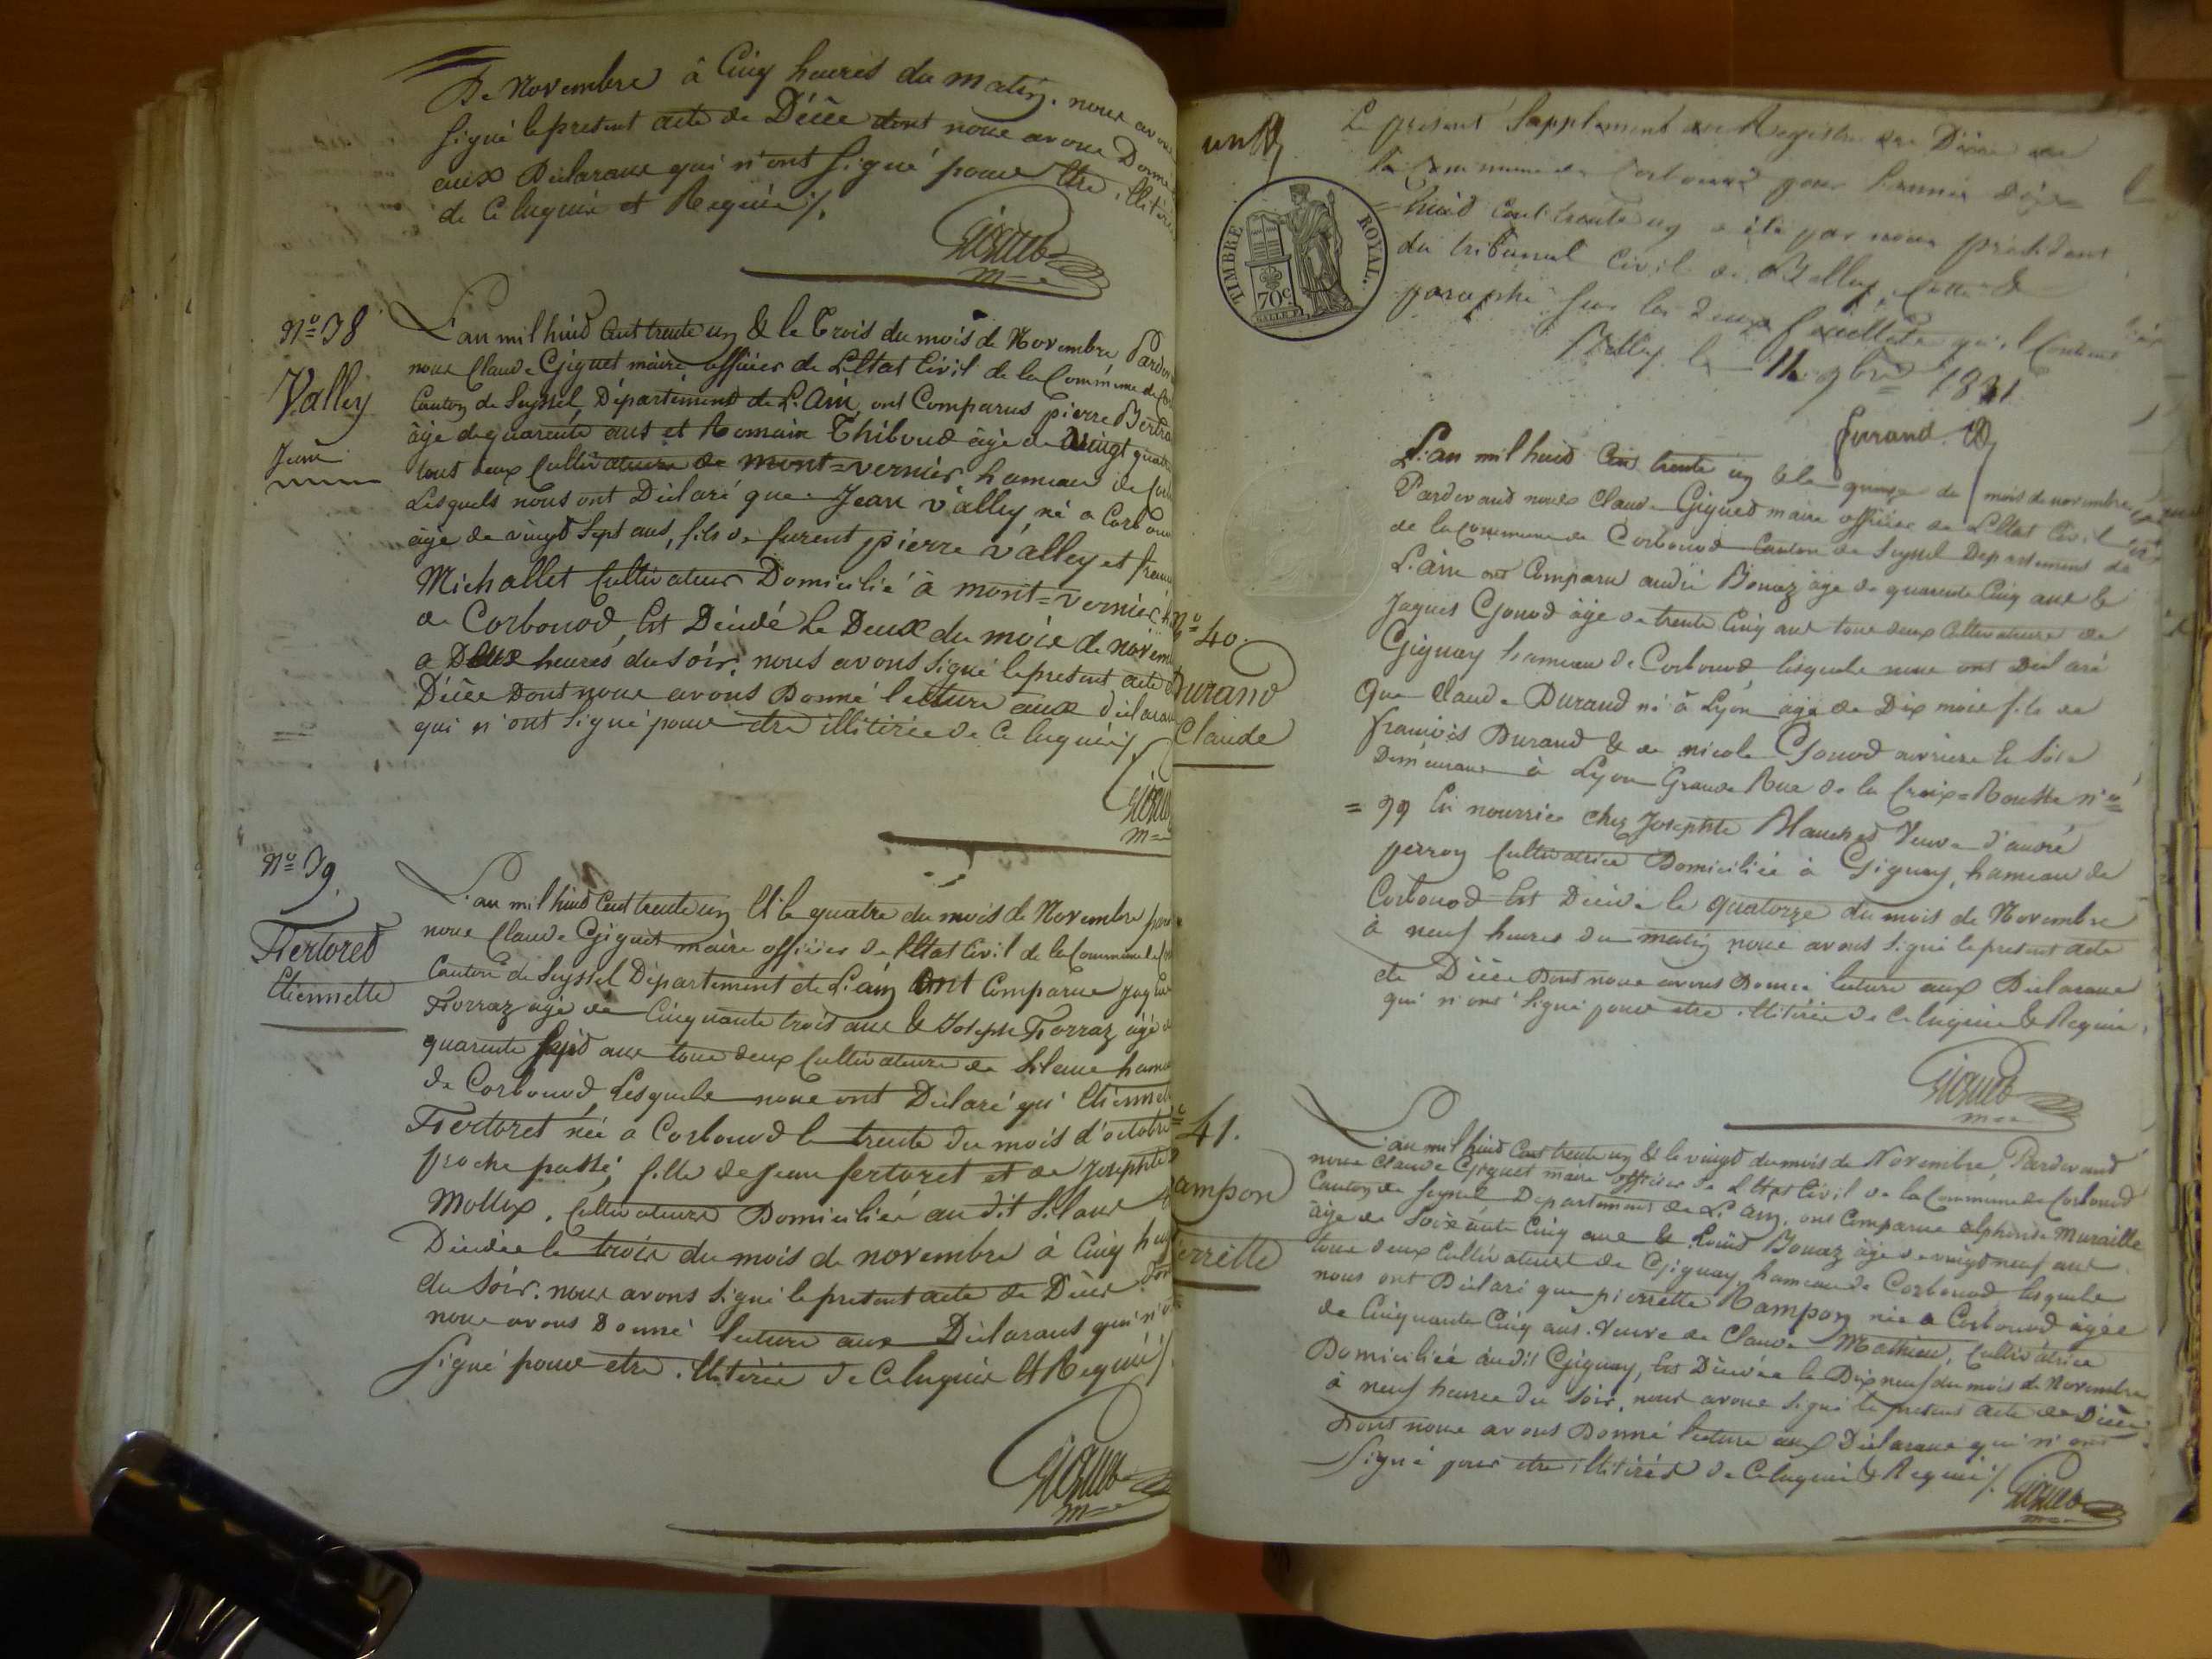 De Novembre à Cinq heures du matin. nous avons
signé le present acte de Décée dont nous avons Donné
aux Déclarans qui n'ont signé pour être illitirés
de ce enquis et Requis
Giguet
m
N° 38
Valley
Jean
L'an mil huid Cent trente un & le trois du mois de Novembre Pardev
nous Claude Giguet maire officier de L'Etat Civil de la Commune de Cor
Canton de Seyssel, Département de L'Ain, ont Comparus pierre Bertra
âge de quarente ans et Romain Thiboud âge de vingt quatre
tous deux Cultivateurs de mont=vernier, hameau de Corb
Lesquels nous ont Déclaré que Jean valley né a Corbonod
âge de vingt Sept ans, fils de furent pierre valley et fran
Michallet Cultivateur Domicilié à mont=vernier
de Corbonod, Est Décédé le Deux du mois de novem
a Deux heures du soir. nous avons signé le present acte d
Décée Dont nous avons Donné lecture aux déclarans
qui n'ont signé pour etre illitirée de ce enquis
Giguet
m
N° 39
Fertoret
Etiennette
L'an mil huid Cent trente un Et le quatre du mois de Novembre par
nous Claude Giguet maire officier de l'Etat Civil de la Commune de
Canton de Seyssel Département de L'ain ont Comparue
Forraz agé de Cinquante trois ans & Joseph Forraz âgé de
quarente Sept ans tous deux Cultivateurs de Silans hame
de Corbonod Lesquels nous ont Déclaré qu'Etiennet
Fertoret née a Corbonod le trente du mois d'octobre
proche passé, fille de Jean fertoret et de Josephte
Mollex. Cultivateurs Domiciliés au dit Silans
Décédée le trois du mois de novembre à Cinq heu
du Soir. nous avons signé le present acte de Décée
nous avons Donné lecture aux Déclarans qui n'o
signé pour etre illitirée de ce enquis Et Requis
Giguet
m
un
Le présent Supplément au Registre des Décès de
la Commune de Corbonod pour l'année dix
huid Cent trente un a été par nous président
du tribunal Civil de Belley, Cotté &
paraphé sur les deux feuillets qu'il Contient
Belley le 11 9bre 1831
Durand
TIMBRE ROYAL.
70c.
N° 40.
Durand
Claude
L'an mil huid Cent trente un & le quinze du mois de novembre
Pardevand nous Claude Gigued maire officier de L'Etat Civil
de la Commune de Corbonod Canton de Seyssel Departement de
L'ain ont Comparu André Bonaz âge de quarante Cinq ans &
Jaques Gonod âge de trente Cinq ans tous deux Cultivateurs de
Gignay hameau de Corbonod, lesquels nous ont Déclaré
que Claude Durand né à Lyon âgé de Dix mois fils de
françois Durand & de nicole Gonod ouvriers en Soie
Demeurans à Lyon Grande Rue de la Croix=Rousse n°
= 99 En nourrice chez Josephte Blanched Veuve d'andré
perron Cultivatrice Domiciliée à Gignay, hameau de
Corbonod Est Décédé le quatorze du mois de Novembre
à neuf heures du matin nous avons signé le present acte
de Décée Dont nous avons Donné lecture aux Déclarans
qui n'ont signé pour etre illitirée de ce enquis & Requis.
Giguet
m
41.
ampon
errette
L'an mil huid Cent trente un & le vingt du mois de Novembre, Pardevand
nous Claude Giguet maire officier de L'Etat Civil de la Commune de Corbonod
Canton de Seyssel, Département de L'ain. ont Comparue alphonse Muraille
âge de Soixante Cinq ans & Louis Bonaz âge de vingt neuf ans
tous deux Cultivateurs de Gignay hameau de Corbonod lesquels
nous ont Déclaré que pierrette Rampon née a Corbonod âgée
de Cinquante Cinq ans. Veuve de Claude Mathieu, Cultivatrice
Domiciliée audit Gignay, Est Décédée le Dix neuf du mois de Novembre
à neuf heures du soir, nous avons signé le present acte de Décée
Dont nous avons Donné lecture aux Déclarans qui n'ont
signé pour etre illitirés de ce enquis & Requis
Giguet
m